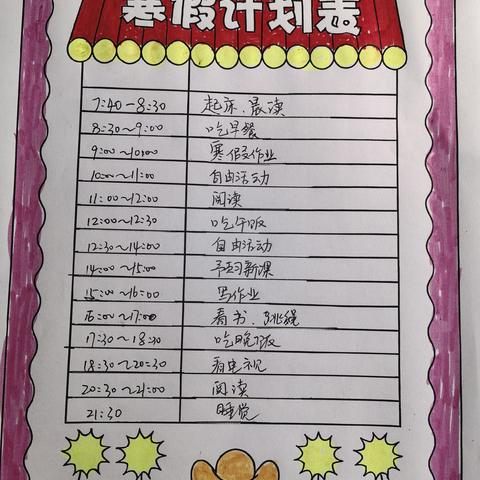 寒假计划表
7:40-8:30 起床、晨读
8:30~9:00 吃早餐
9:00~10:00 寒假作业
10:00~11:00 自由活动
11:00~12:00 阅读
12:00~12:30 吃午饭
12:30~14:00 自由活动
14:00~15:00 预习新课
15:00~16:00 写作业
16:00~17:00 看书、跳绳
17:30~18:30 吃晚饭
18:30~20:30 看电视
20:30~21:00 阅读
21:30 睡觉